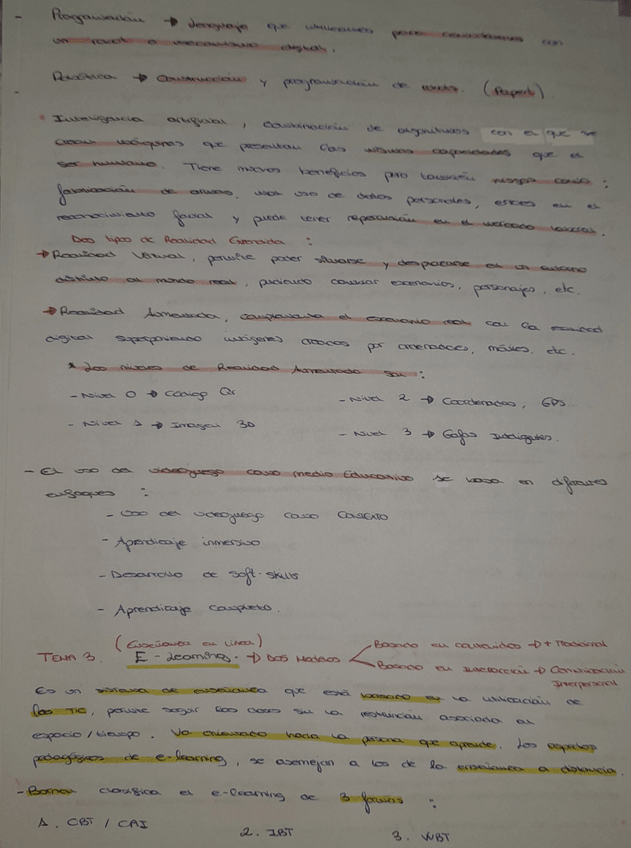 - Programación → Lenguaje que utilizamos para comunicarnos con
un robot o mecanismo digital.
- Robótica → Construcción y programación de robots. (Papert)
* Inteligencia artificial, combinación de algoritmos con el que se
crean máquinas que presentan las mismas capacidades que el
ser humano. Tiene muchos beneficios pero también riesgos como:
fabricación de armas, mal uso de datos personales, errores en el
reconocimiento facial y puede tener repercusión en el mercado laboral.
Dos tipos de Realidad Generada :
→ Realidad Virtual, permite poder situarse y desplazarse en un entorno
distinto al mundo real, pudiendo conocer escenarios, personajes, etc.
→ Realidad Aumentada, complementa el escenario real con la realidad
digital superponiendo imágenes creadas por ordenadores, móviles, etc.
* Los niveles de Realidad Aumentada son :
- Nivel 0 → Código Qr - Nivel 2 → Coordenadas, GPS
- Nivel 1 → Imagen 3D - Nivel 3 → Gafas Inteligentes.
- El uso del videojuego como medio Educativo se basa en diferentes
enfoques :
- Uso del videojuego como CONTEXTO
- Aprendizaje inmersivo
- Desarrollo de Soft-Skills
- Aprendizaje Completo.
(Enseñanza en línea)
TEMA 3. E-Learning. → Dos Modelos
Basado en contenidos → + Tradicional
Basado en Interacción → Comunicación
Interpersonal
Es un sistema de enseñanza que está basado en la utilización de
las TIC, permite seguir las clases sin la restricción asociada al
espacio/tiempo. Va orientado hacia la persona que aprende. Los aspectos
pedagógicos de e-learning, se asemejan a los de la enseñanza a distancia.
- clasifica el e-learning de 3 formas :
1. CBT / CAI 2. IBT 3. WBT